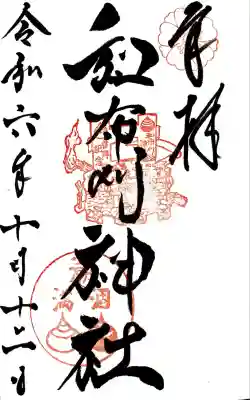 奉拝
和布刈神社
令和六年十月十二日